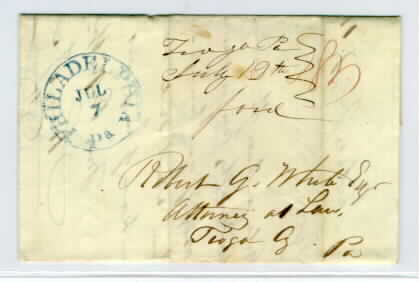 PHILADELPHIA
JUL
7
Pa
Tioga Pa
July 19th
ford
Robert G. White Esqr
Attorney at Law,
Tioga Co. Pa